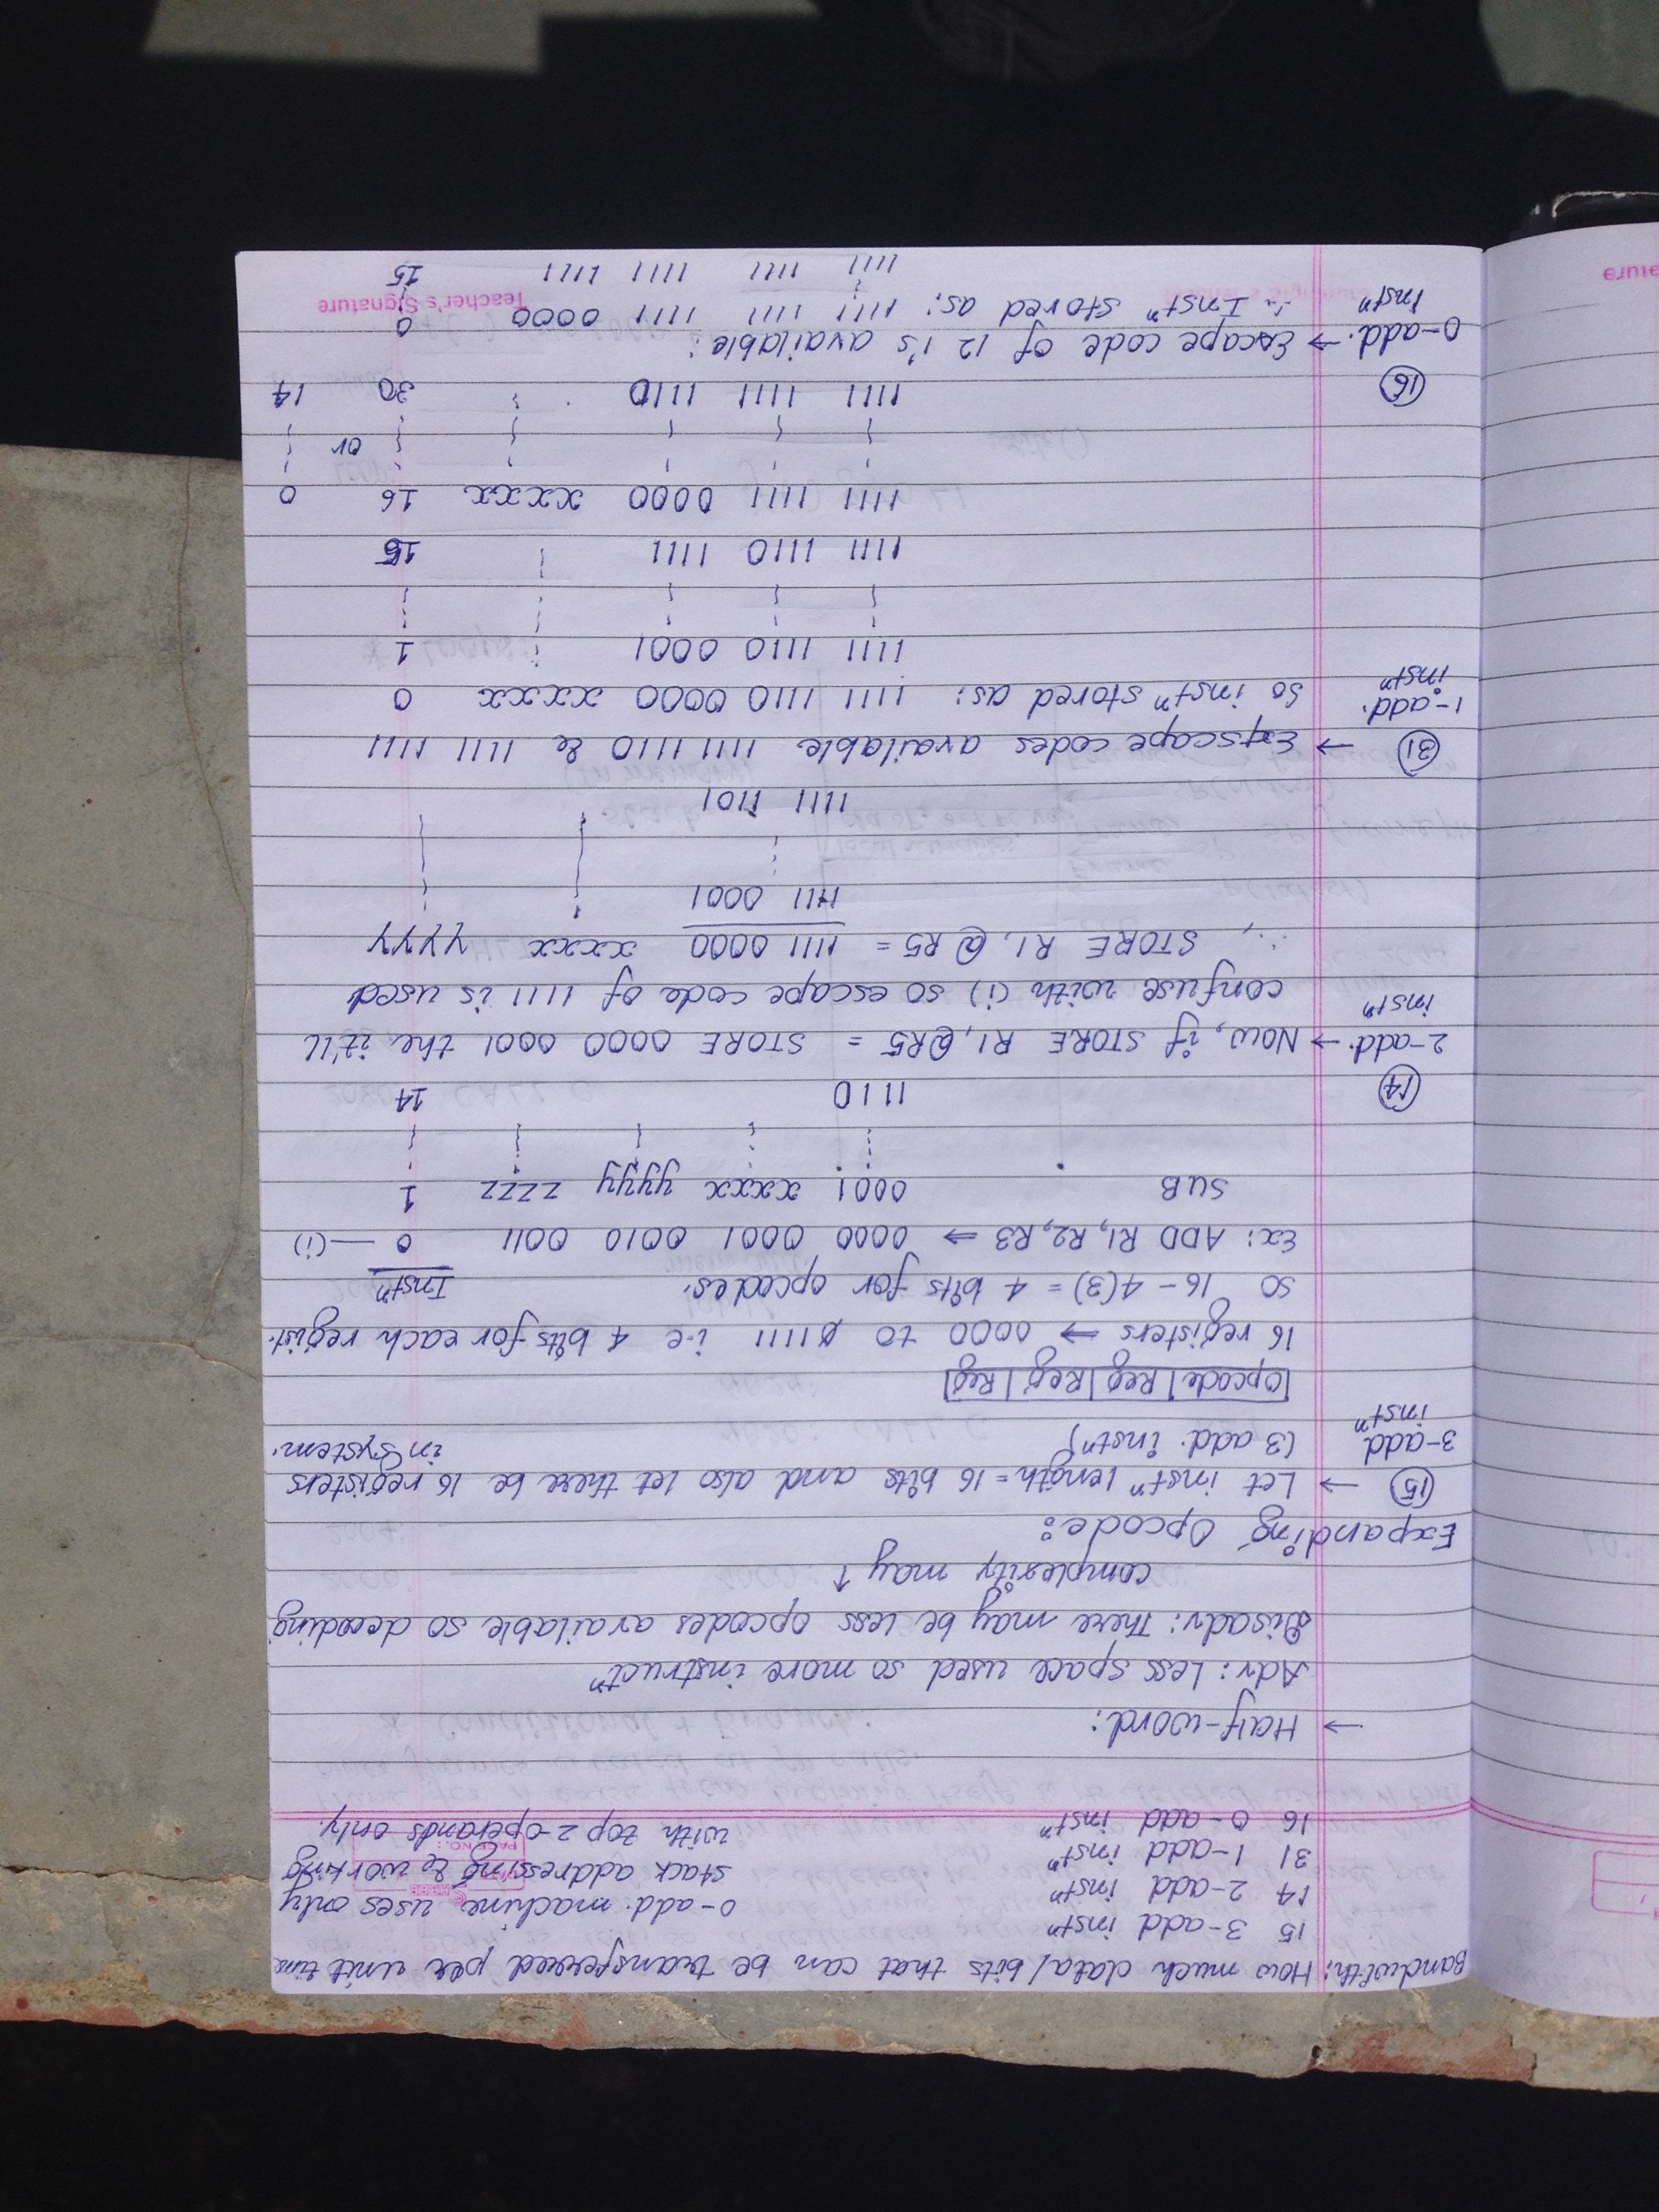 Bandwith: How much data/bits that can be transferred per unit time
15 3-add instⁿ
14 2-add instⁿ
31 1-add instⁿ
16 0-add instⁿ
0-add. machine uses only
stack addressing & working
with top 2-operands only.
PAGE NO.:
→ Half-word:
Adv: Less space used so more instructⁿ
Disadv: There may be less opcodes available so decoding
complexity may ↑
Expanding Opcode:
15 → Let instⁿ length = 16 bits and also let there be 16 registers
3-add instⁿ (3 add. instⁿ) in system.
Opcode | Reg | Reg | Reg
16 registers → 0000 to 1111 i.e 4 bits for each regist.
so 16 - 4(3) = 4 bits for opcodes. Instⁿ
Ex: ADD R1, R2, R3 ⇒ 0000 0001 0010 0011 0 —(i)
SUB 0001 xxxx yyyy zzzz 1
1110 14
14
2-add. instⁿ → Now, if STORE R1, @R5 = STORE 0000 0001 the it'll
confuse with (i) so escape code of 1111 is used
∴, STORE R1, @R5 = 1111 0000 xxxx yyyy
1111 0001
1111 1101
31 → Escape codes available 1111 1110 & 1111 1111
1-add. instⁿ So instⁿ stored as: 1111 1110 0000 xxxx 0
1111 1110 0001 1
1111 1110 1111 15
1111 1111 0000 xxxx 16 0
or
1111 1111 1110 30 14
16
0-add. instⁿ → Escape code of 12 1's available:
∴ Instⁿ stored as: 1111 1111 1111 0000 0
Teacher's Signature
1111 1111 1111 1111 15